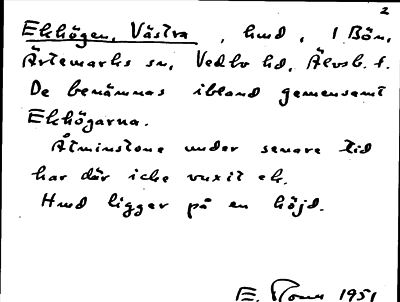 2
Ekhögen, Västra, hmd, i Bön,
Ärtemarks sn, Vedbo hd, Älvsb. l.
De benämnas ibland gemensamt
Ekhögarna.
Åtminstone under senare tid
har där icke vuxit ek.
Hmd ligger på en höjd.
E. 1951